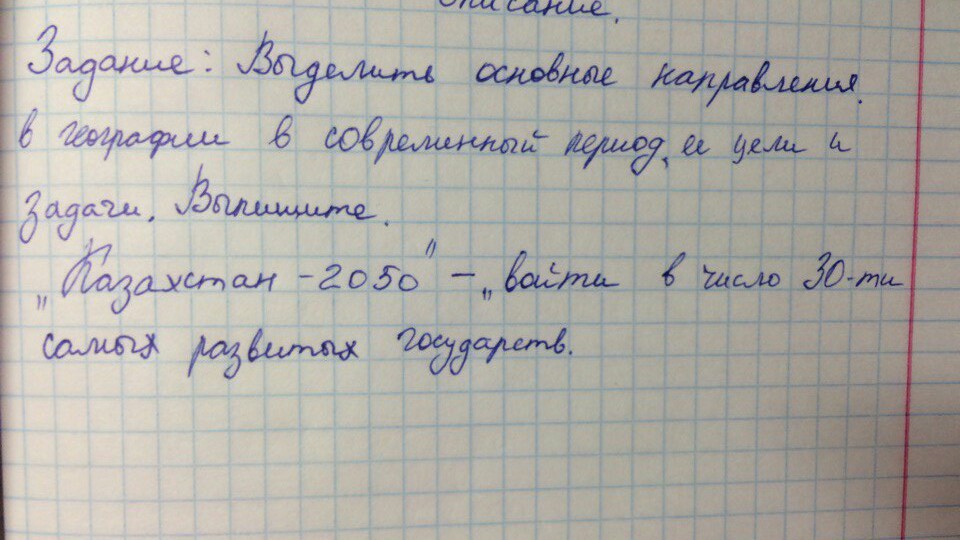 Описание.
Задание: Выделить основные направления
в географии в современный период, ее цели и
задачи. Выпишите.
„Казахстан - 2050" – „войти в число 30-ти
самых развитых государств.